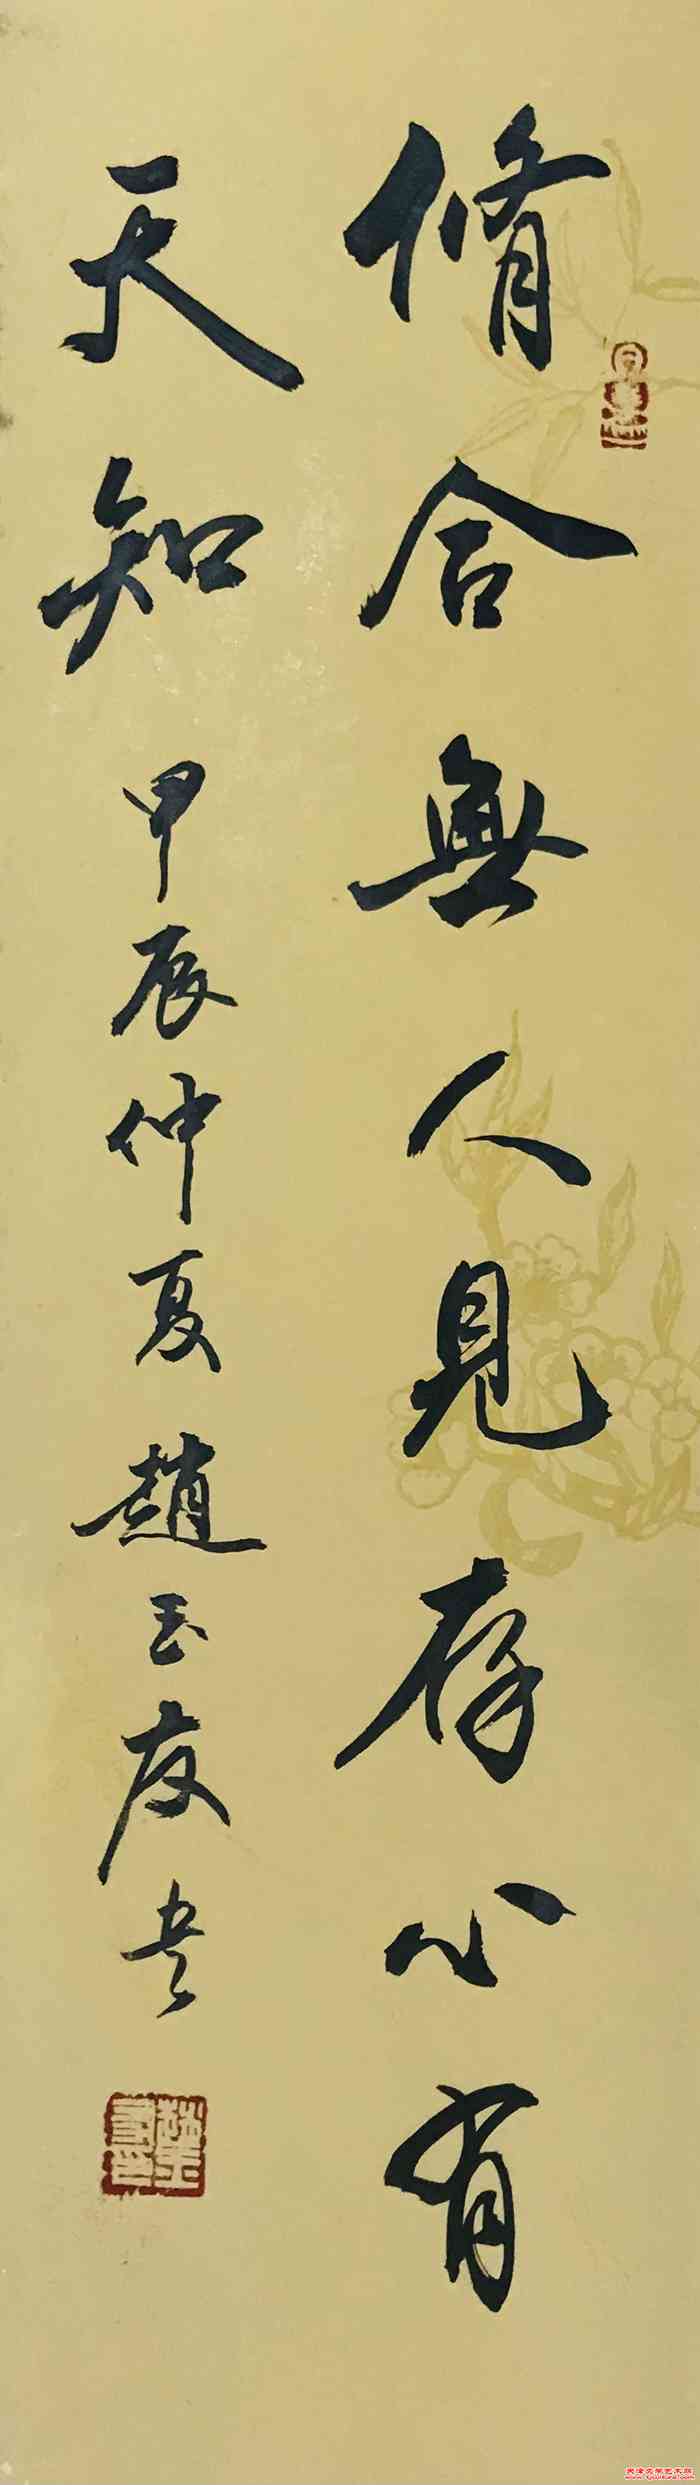 脩合無人見存心有
天知 甲辰仲夏趙玉友書